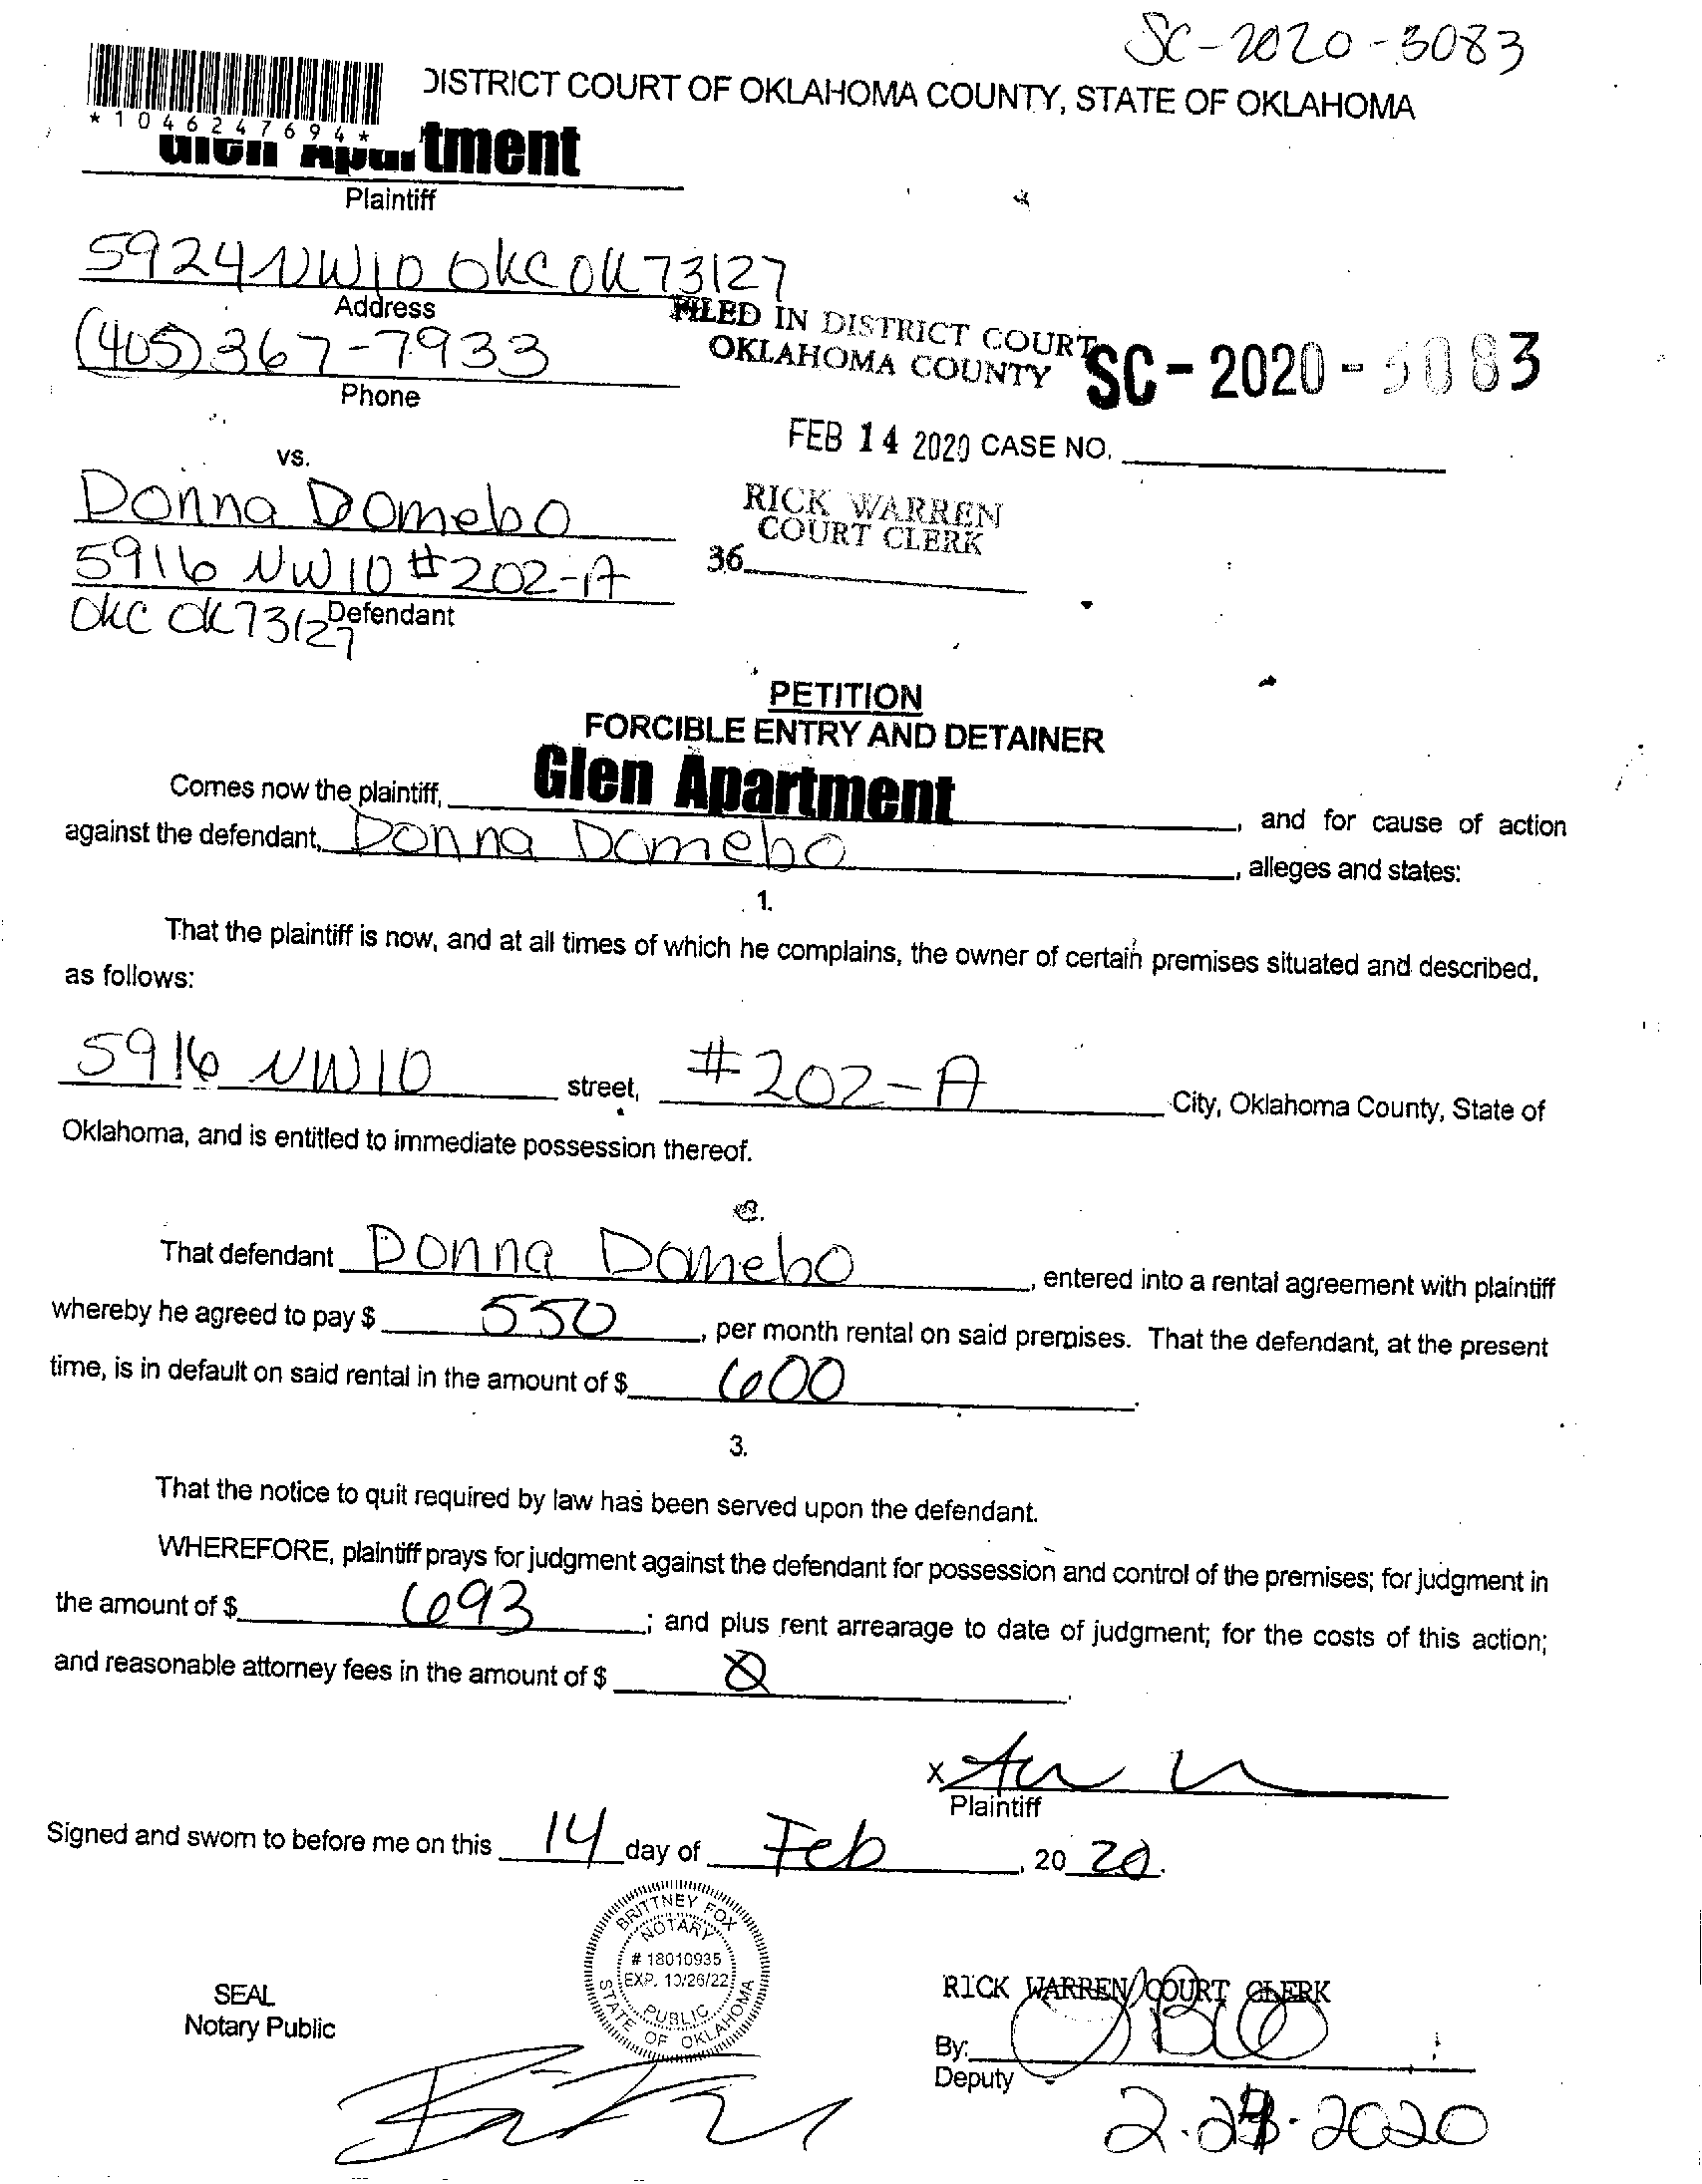 SC-2020-3083
DISTRICT COURT OF OKLAHOMA COUNTY, STATE OF OKLAHOMA
*1046247694*
Glen Apartment
Plaintiff
5924 NW 10 OKC OK 73127
Address
(405) 367-7933
Phone
FILED IN DISTRICT COURT
OKLAHOMA COUNTY
SC-2020-3083
FEB 14 2020 CASE NO.
vs.
Donna Domebo
5916 NW 10 #202-A
OKC OK 73127
Defendant
RICK WARREN
COURT CLERK
36
PETITION
FORCIBLE ENTRY AND DETAINER
Comes now the plaintiff, Glen Apartment, and for cause of action
against the defendant, Donna Domebo, alleges and states:
1.
That the plaintiff is now, and at all times of which he complains, the owner of certain premises situated and described,
as follows:
5916 NW 10 street, #202-A City, Oklahoma County, State of
Oklahoma, and is entitled to immediate possession thereof.
That defendant Donna Domebo, entered into a rental agreement with plaintiff
whereby he agreed to pay $ 550, per month rental on said premises. That the defendant, at the present
time, is in default on said rental in the amount of $ 600.
3.
That the notice to quit required by law has been served upon the defendant.
WHEREFORE, plaintiff prays for judgment against the defendant for possession and control of the premises; for judgment in
the amount of $ 693; and plus rent arrearage to date of judgment; for the costs of this action;
and reasonable attorney fees in the amount of $ 0.
X
Plaintiff
Signed and sworn to before me on this 14 day of Feb, 20 20.
BRITTNEY FOX
NOTARY
# 18010935
EXP. 10/26/22
PUBLIC
STATE OF OKLAHOMA
SEAL
Notary Public
RICK WARREN COURT CLERK
By:
Deputy